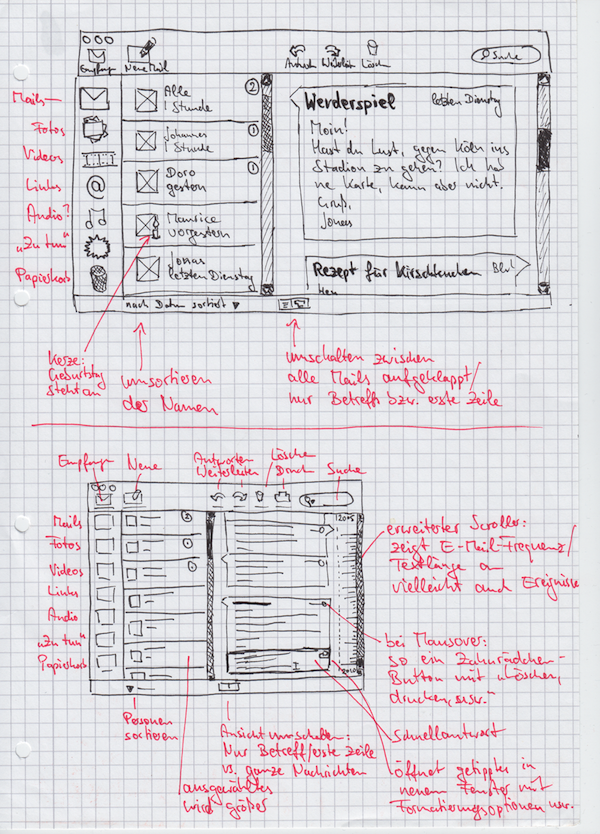 Empfang Neue Mail Antwort Weiterleit Lösch Suche
Mails
Fotos
Videos
Links
Audio?
"Zu tun"
Papierkorb
Alle
1 Stunde
2
Johannes
1 Stunde
1
Doro
gestern
1
Maurice
vorgestern
Jonas
letzten Dienstag
nach Datum sortiert
Werderspiel letzten Dienstag
Moin!
Hast du Lust, gegen Köln ins
Stadion zu gehen? Ich hab
ne Karte, kann aber nicht.
Gruß,
Jonas
Rezept für Kirschkuchen
Kerze:
Geburtstag
steht an
umsortieren
der Namen
umschalten zwischen
alle Mails aufgeklappt/
nur Betreffs bzw. erste Zeile
Empfang Neue
Antworten
Weiterleiten
Löschen
Druck
Suche
Mails
Fotos
Videos
Links
Audio
"Zu tun"
Papierkorb
2
1
1
2005
2010
erweiterter Scroller:
zeigt E-Mail-Frequenz/
Textlänge an
vielleicht auch Ereignisse
bei Mausover:
so ein Zahnrädchen-
Button mit "Löschen,
drucken, usw."
Schnellantwort
öffnet getipptes in
neuem Fenster mit
Formatierungsoptionen usw.
Personen
sortieren
ausgewähltes
wird größer
Ansicht umschalten:
Nur Betreff/erste Zeile
vs. ganze Nachrichten